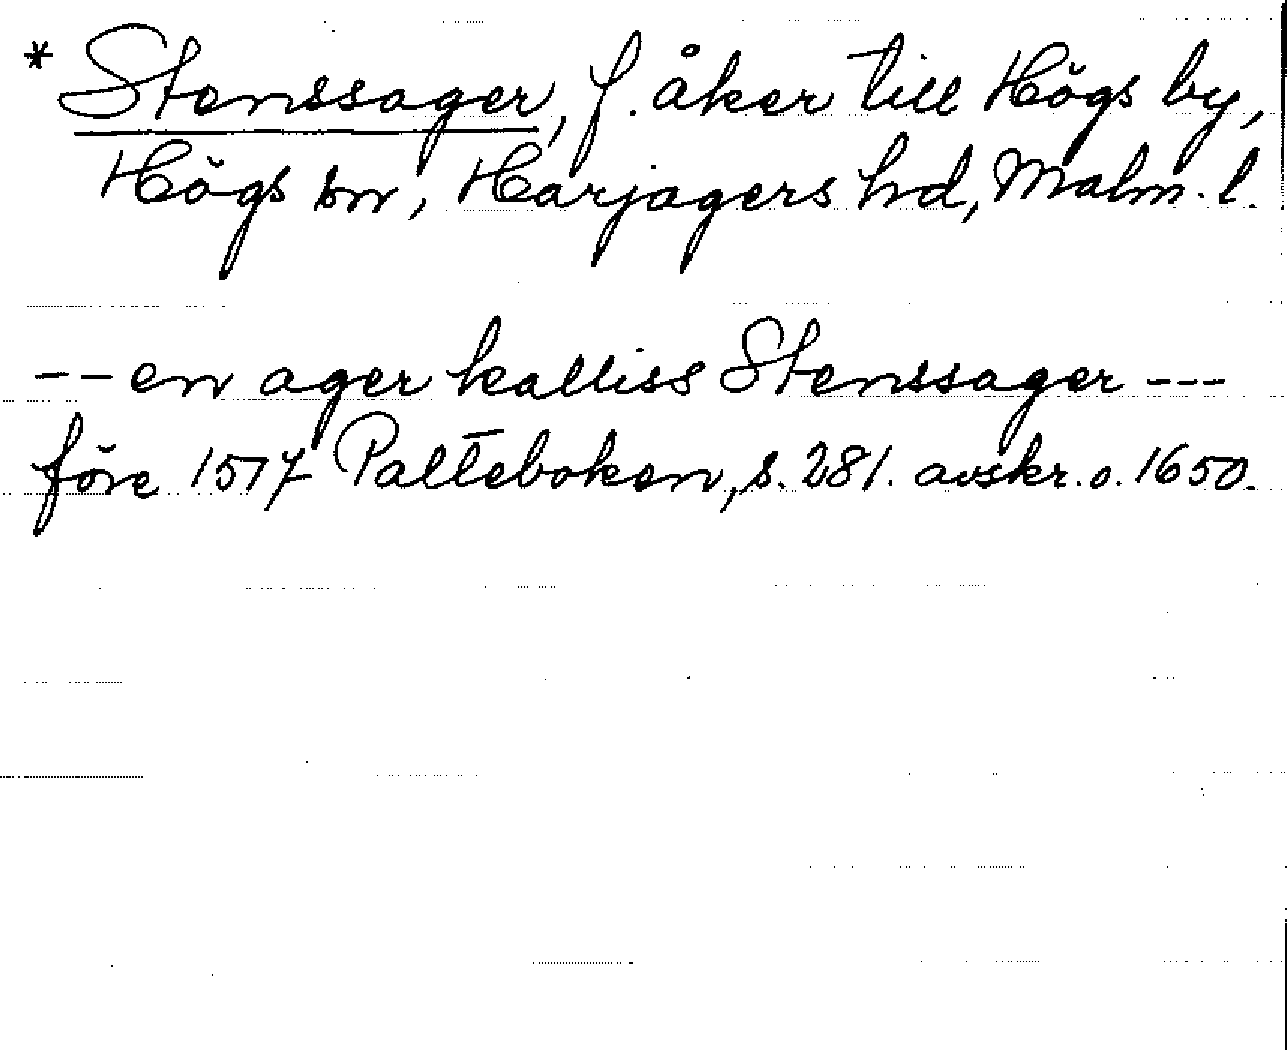 * Stenssager, f. åker till Högs by,
Högs sn, Harjagers hd, Malm. l.
-- en ager kalliss Stenssager ---
före 1517 Palteboken, s. 281. avskr. o. 1650.